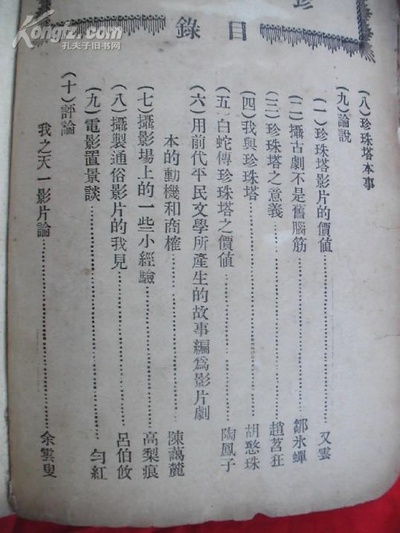 珍
目錄
（八）珍珠塔本事
（九）論說
（一）珍珠塔影片的價值……又雲
（二）攝古劇不是舊腦筋……鄒氷蟬
（三）珍珠塔之意義……趙苕狂
（四）我與珍珠塔……胡憨珠
（五）白蛇傳珍珠塔之價值……陶鳳子
（六）用前代平民文學所產生的故事編爲影片劇
本的動機和商榷……陳藹麓
（七）攝影場上的一些小經驗……高梨痕
（八）攝製通俗影片的我見……呂伯攸
（九）電影置景談……勻紅
（十）評論
我之天一影片論……余雲叟
孔夫子旧书网